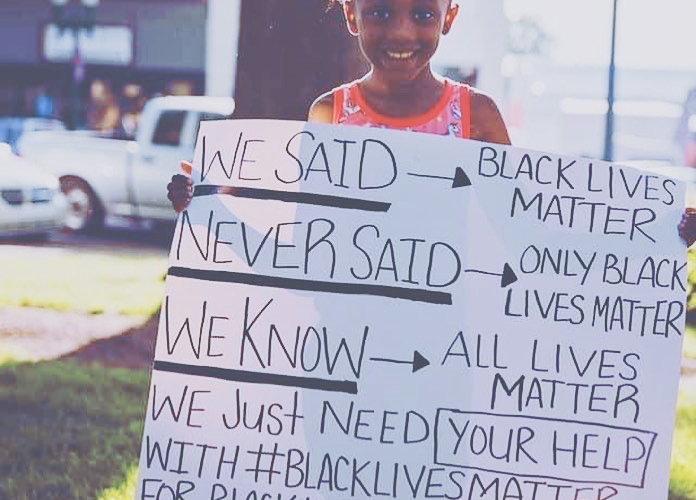 WE SAID → BLACK LIVES
MATTER
NEVER SAID → ONLY BLACK
LIVES MATTER
WE KNOW → ALL LIVES
MATTER
WE Just NEED YOUR HELP
WITH #BLACKLIVESMATTER
FOR